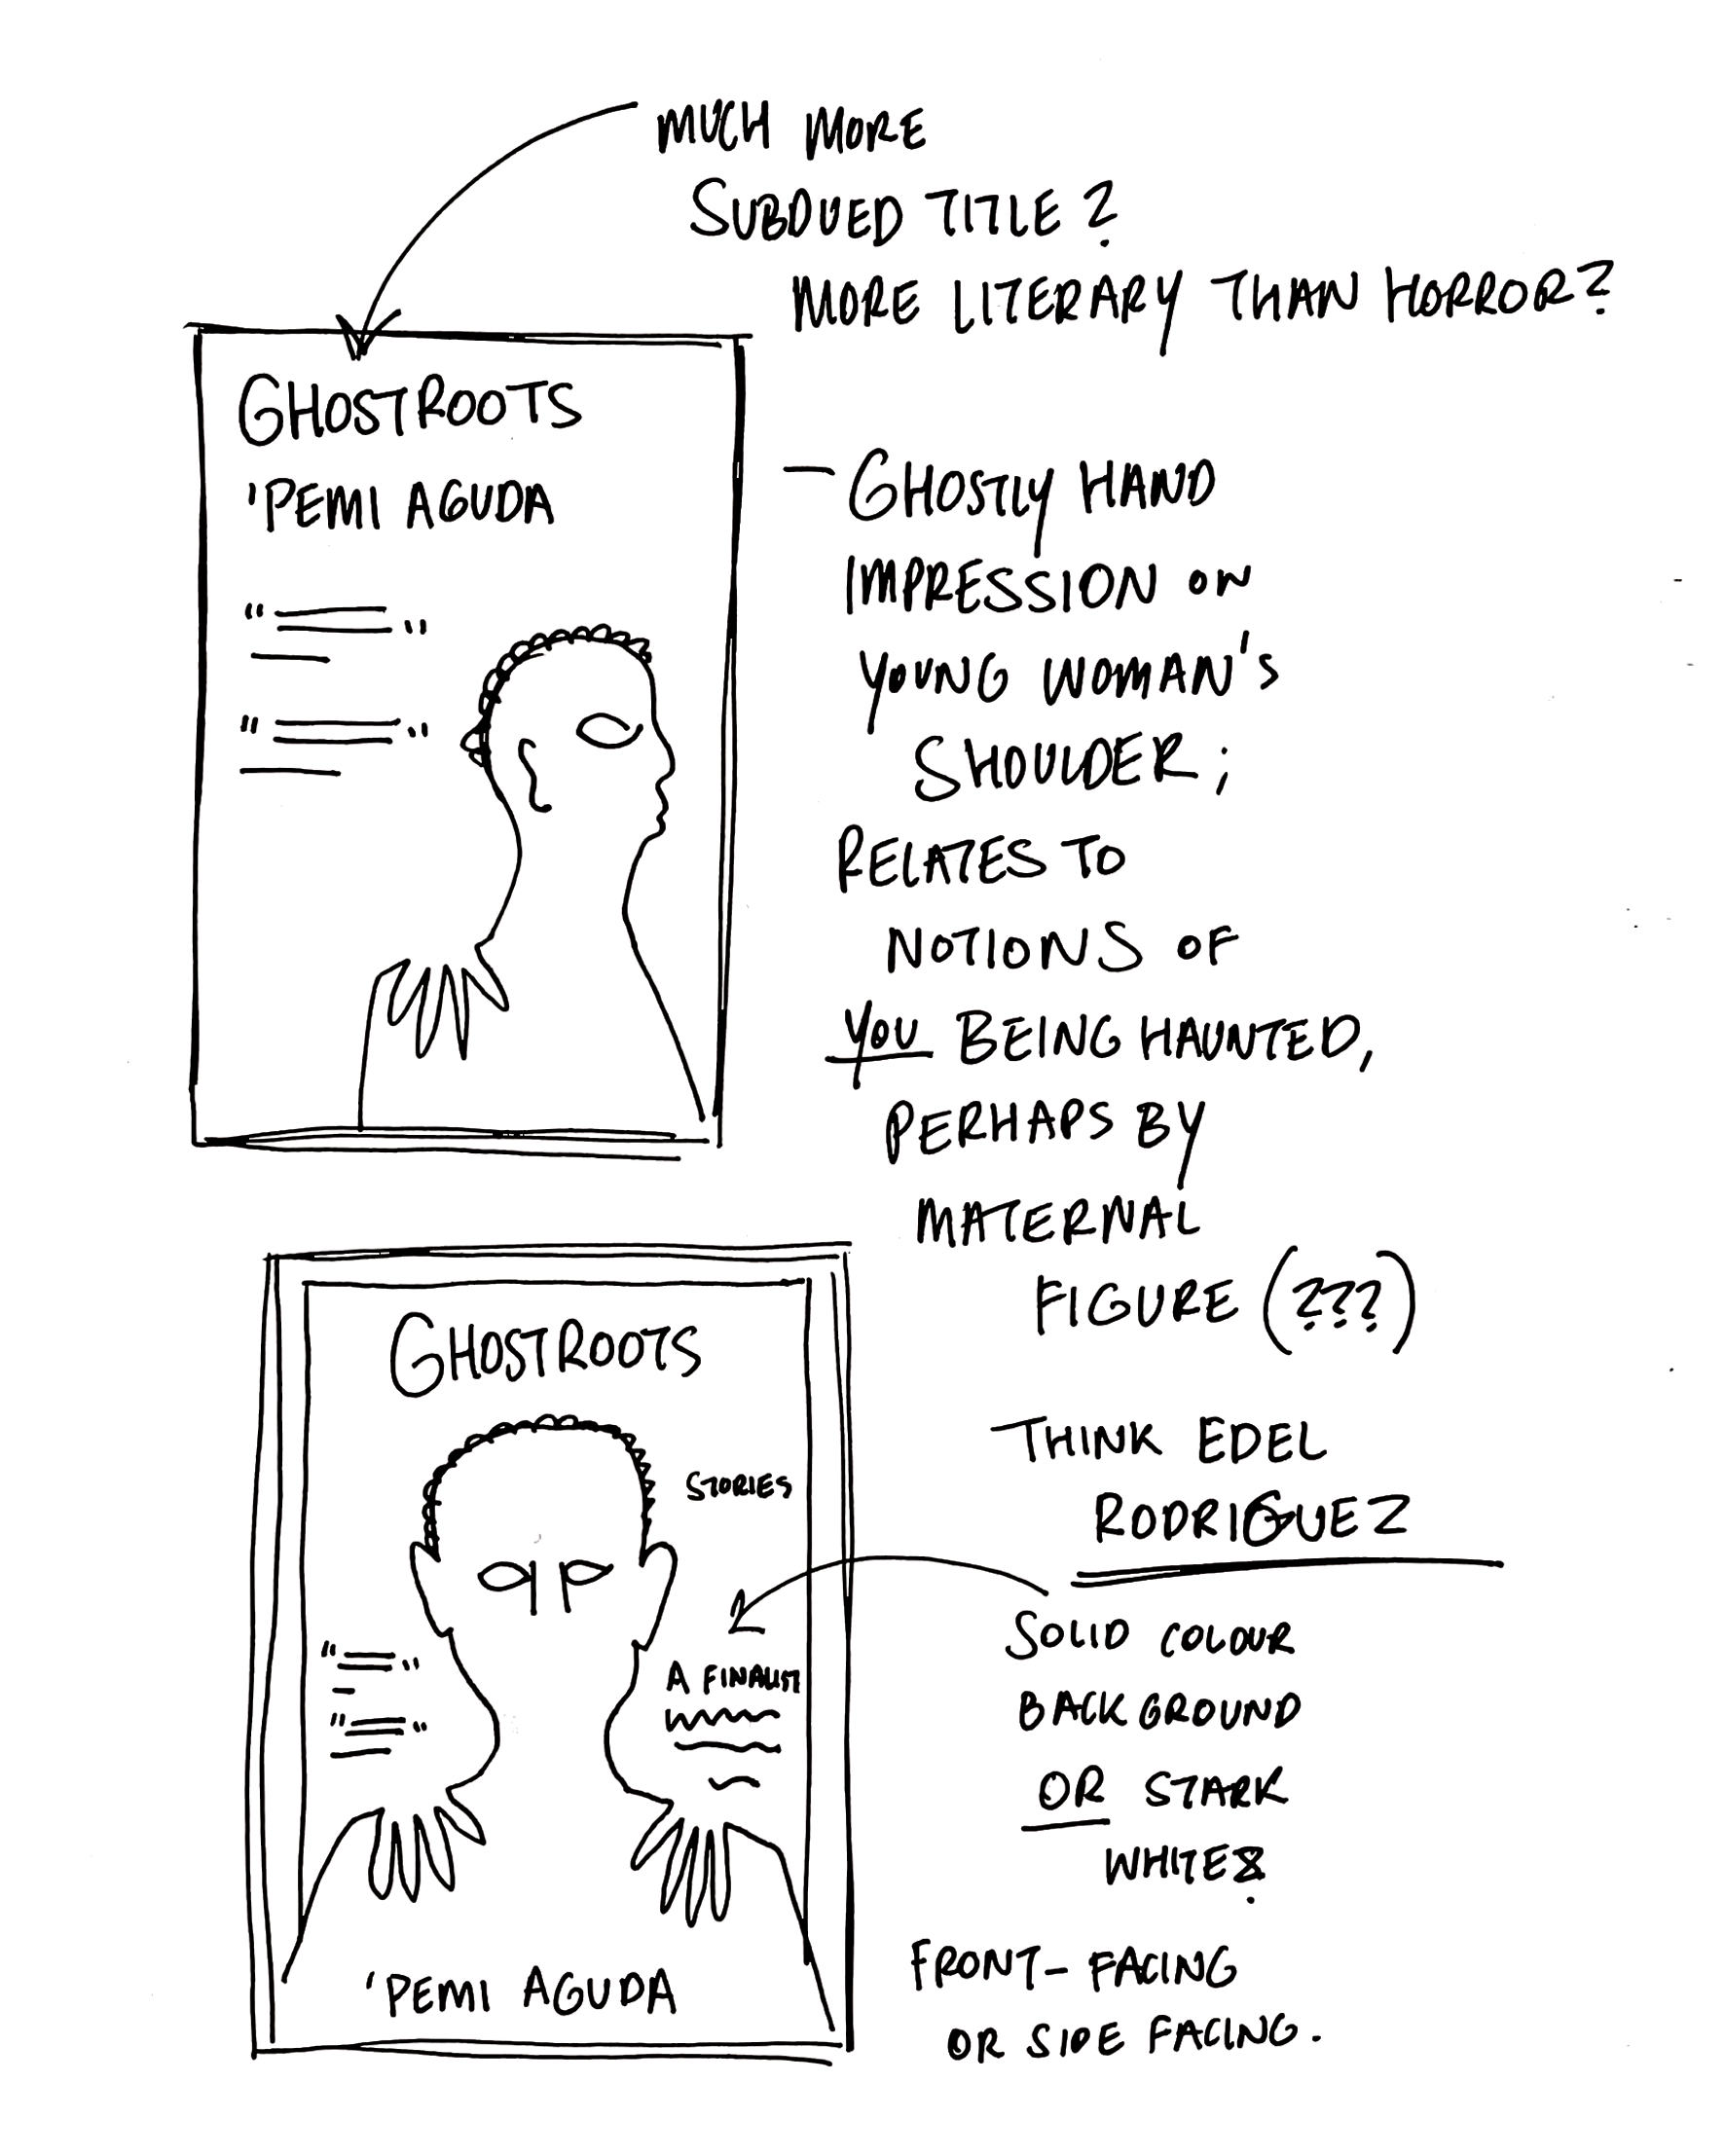 MUCH MORE
SUBDUED TITLE?
MORE LITERARY THAN HORROR?
GHOSTROOTS
'PEMI AGUDA
— GHOSTLY HAND
IMPRESSION ON
YOUNG WOMAN'S
SHOULDER;
RELATES TO
NOTIONS OF
YOU BEING HAUNTED,
PERHAPS BY
MATERNAL
FIGURE (???)
GHOSTROOTS
STORIES
A FINALIST
'PEMI AGUDA
THINK EDEL
RODRIGUEZ
SOLID COLOUR
BACKGROUND
OR STARK
WHITE?
FRONT-FACING
OR SIDE FACING.